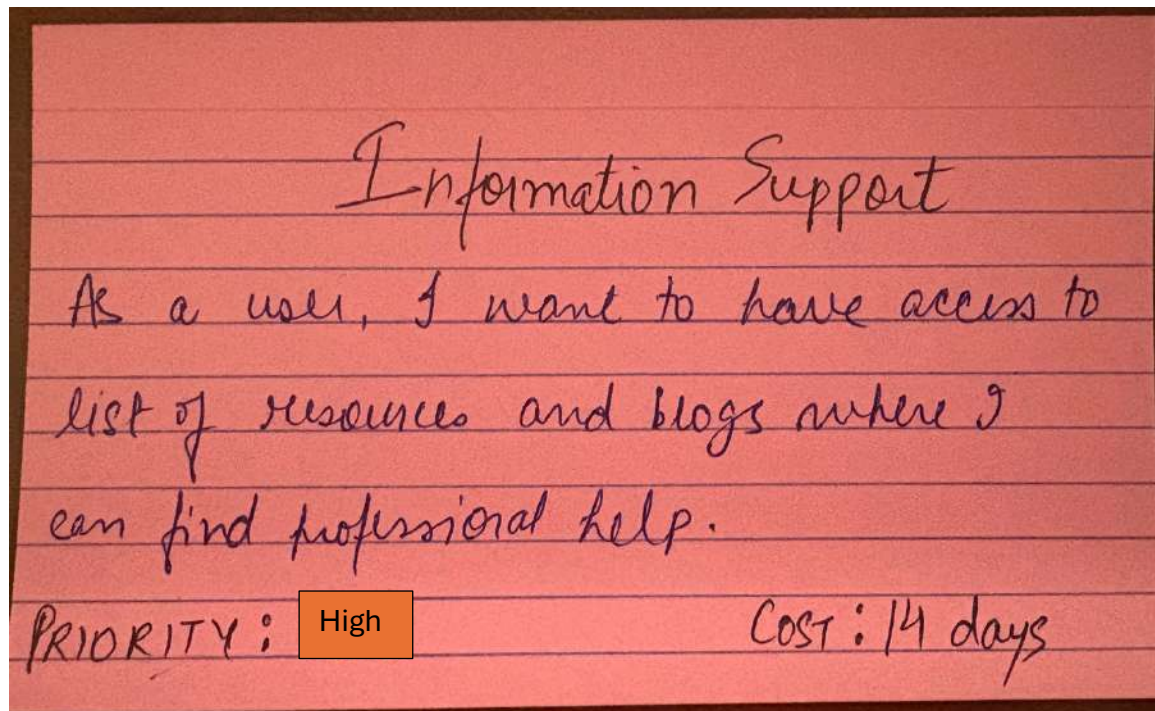 Information Support
As a user, I want to have access to
list of resources and blogs where I
can find professional help.
PRIORITY: High COST: 14 days